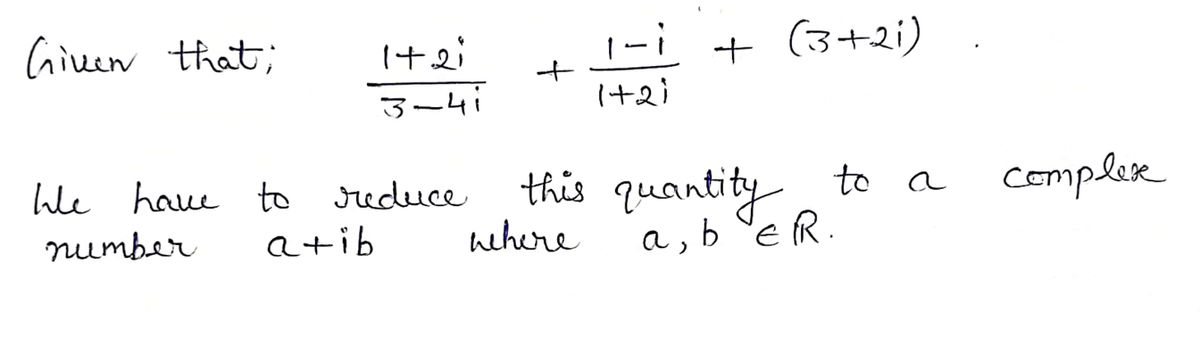 Given that; \frac{1+2i}{3-4i} + \frac{1-i}{1+2i} + (3+2i) .
We have to reduce this quantity to a complex
number a+ib where a, b ∈ ℝ.